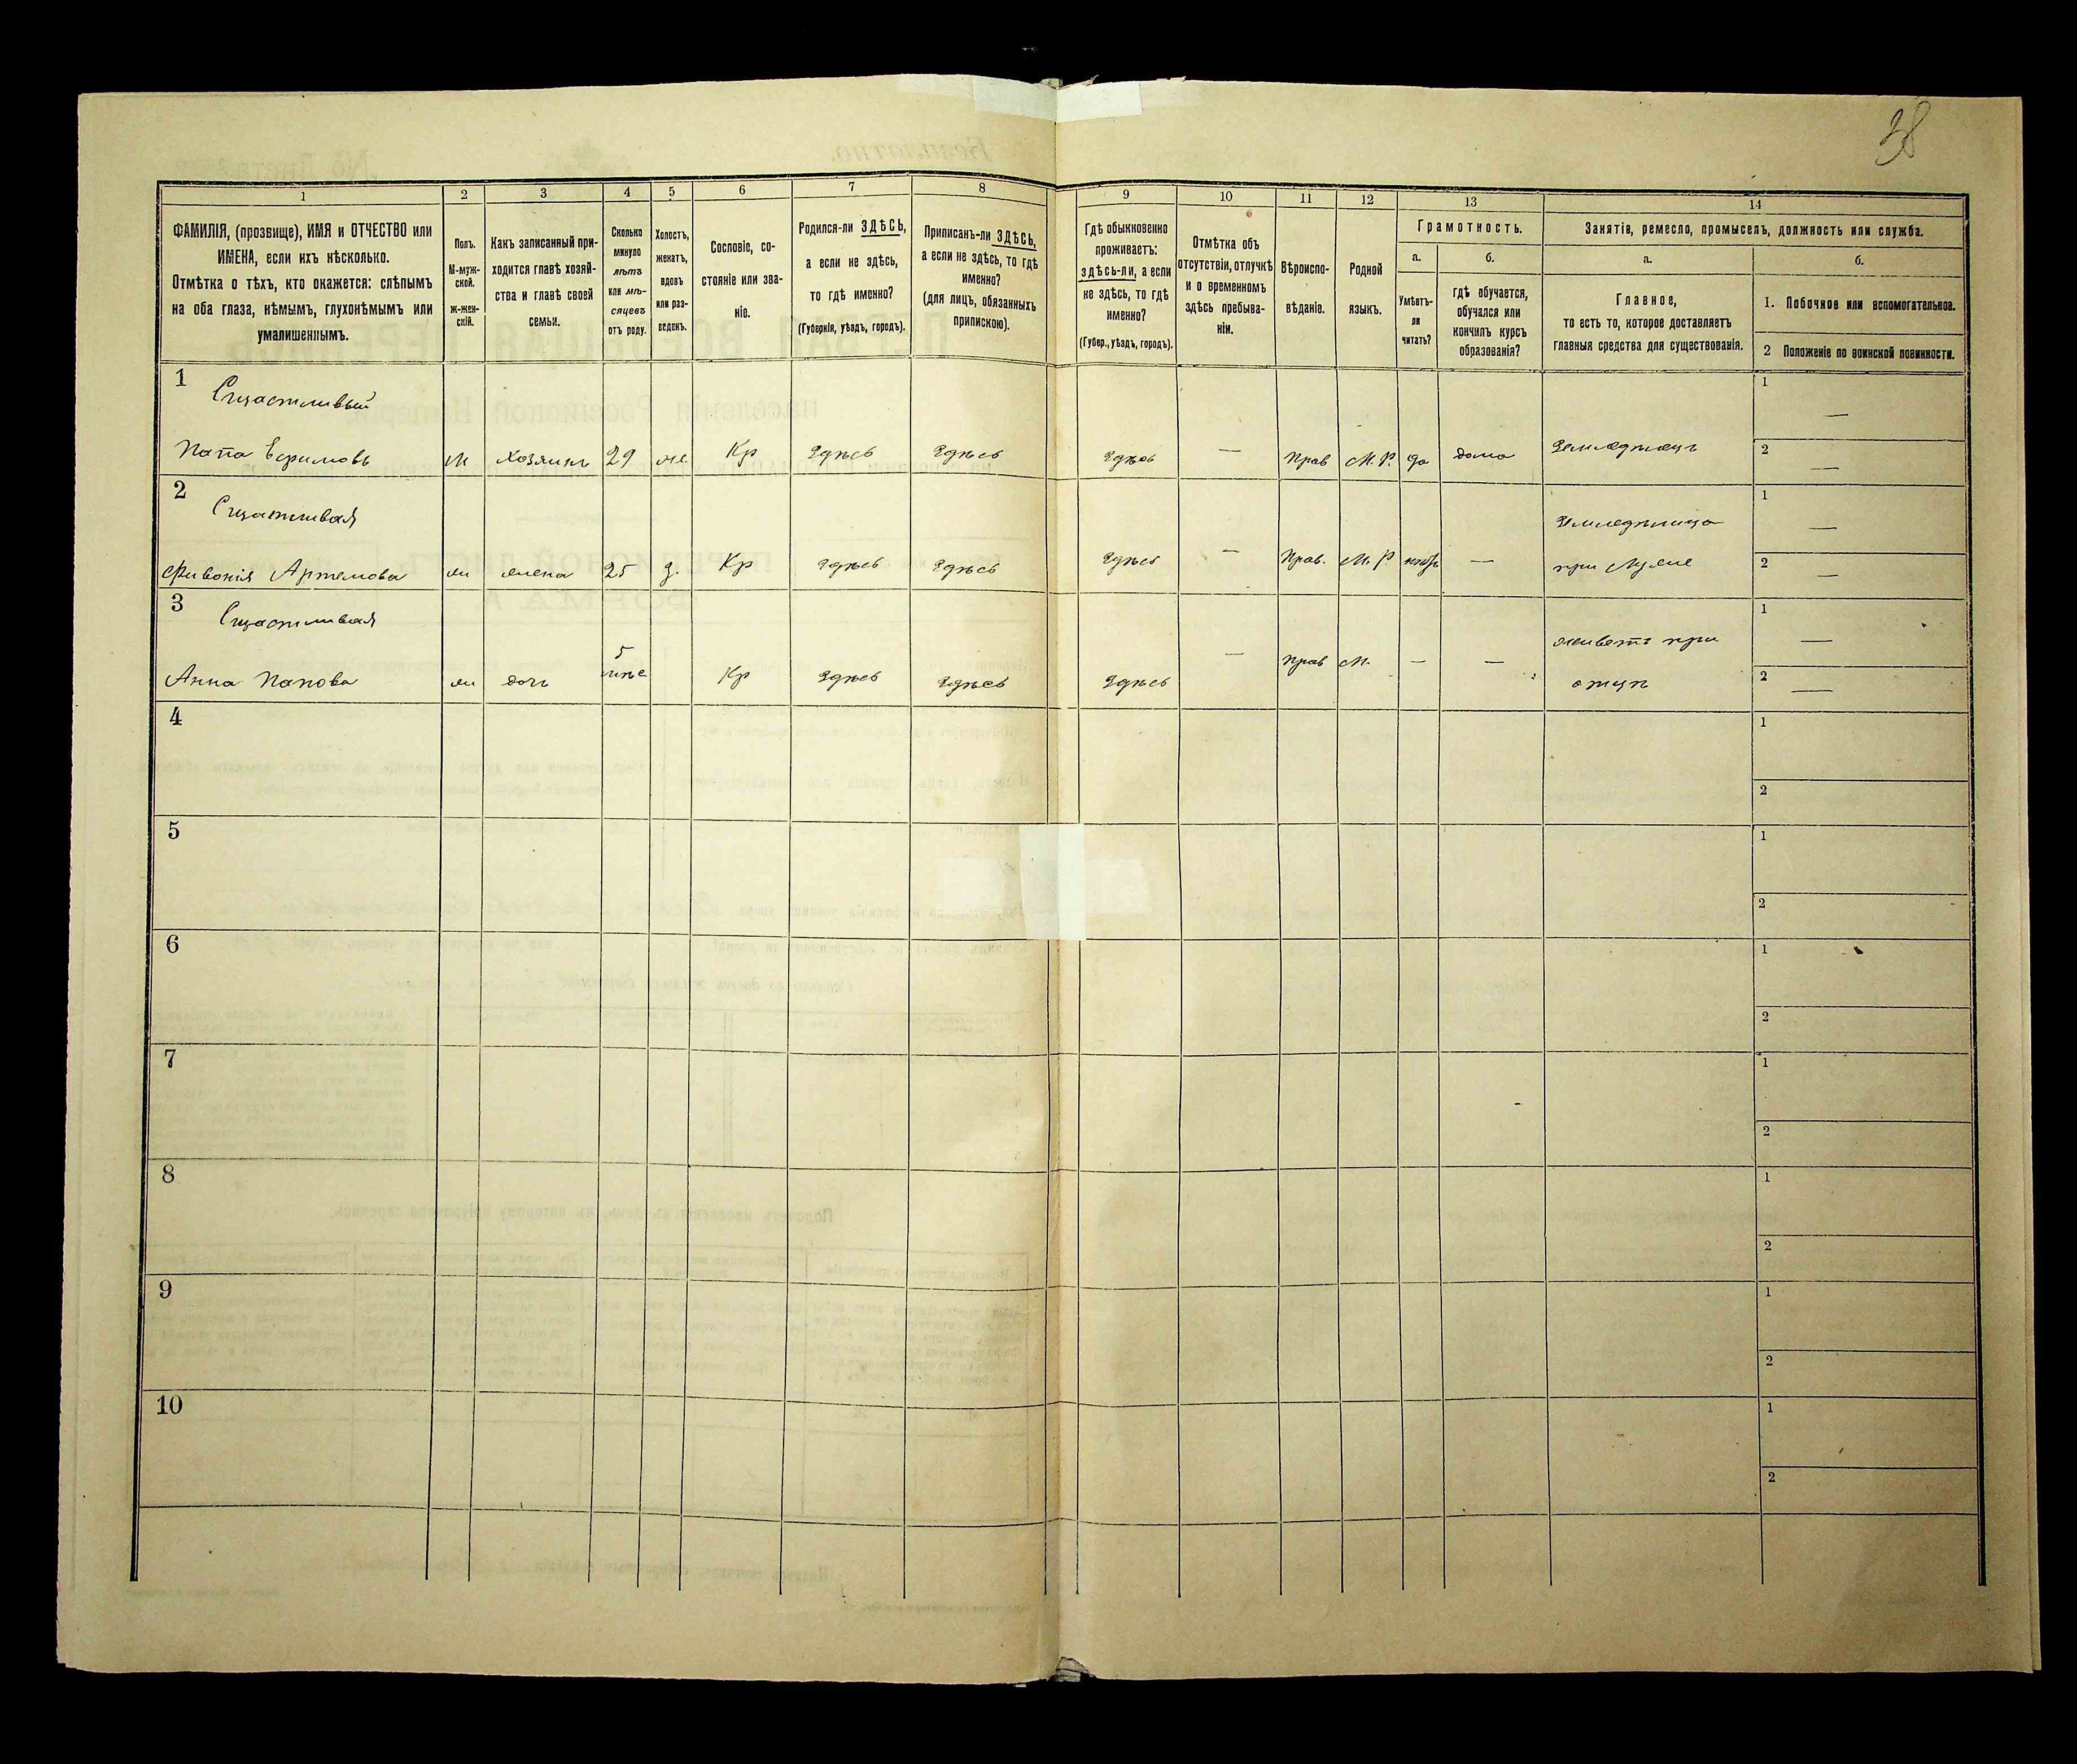 38
1
2
3
4
5
6
7
8
9
10
11
12
13
14
ФАМИЛІЯ, (прозвище), ИМЯ и ОТЧЕСТВО или
ИМЕНА, если ихъ нѣсколько.
Отмѣтка о тѣхъ, кто окажется: слѣпымъ
на оба глаза, нѣмымъ, глухонѣмымъ или
умалишеннымъ.
Полъ.
М-муж-
ской.
ж-жен-
скій.
Какъ записанный при-
ходится главѣ хозяй-
ства и главѣ своей
семьи.
Сколько
минуло
лѣтъ
или мѣ-
сяцевъ
отъ роду.
Холостъ,
женатъ,
вдовъ
или раз-
веденъ.
Сословіе, со-
стояніе или зва-
ніе.
Родился-ли ЗДѢСЬ,
а если не здѣсь,
то гдѣ именно?
(Губернія, уѣздъ, городъ).
Приписанъ-ли ЗДѢСЬ,
а если не здѣсь, то гдѣ
именно?
(для лицъ, обязанныхъ
припискою).
Гдѣ обыкновенно
проживаетъ:
здѣсь-ли, а если
не здѣсь, то гдѣ
именно?
(Губер., уѣздъ, городъ).
Отмѣтка объ
отсутствіи, отлучкѣ
и о временномъ
здѣсь пребыва-
ніи.
Вѣроиспо-
вѣданіе.
Родной
языкъ.
Грамотность.
а.
Умѣетъ-
ли
читать?
б.
гдѣ обучается,
обучался или
кончилъ курсъ
образованія?
Занятія, ремесло, промыселъ, должность или служба.
а.
Главное,
то есть то, которое доставляетъ
главныя средства для существованія.
б.
1. Побочное или вспомогательное.
2 Положеніе по воинской повинности.
1
Сщастливый
м хозяинъ 29 же. Кр Здѣсь Здѣсь Здѣсь — Прав М. Р. да дома Земледѣлецъ
1 —
2 —
2
Сщастливая
Фивонія Артемова жи жена 25 з. Кр Здѣсь Здѣсь Здѣсь — Прав. М. Р нѣтъ —
Земледѣлица
при мужѣ
1 —
2 —
3
Сщастливая
Анна Папова жи дочь 5 Кр Здѣсь Здѣсь Здѣсь — Прав М. — —
живетъ при
отцѣ
1 —
2 —
4
1
2
5
1
2
6
1
2
7
1
2
8
1
2
9
1
2
10
1
2